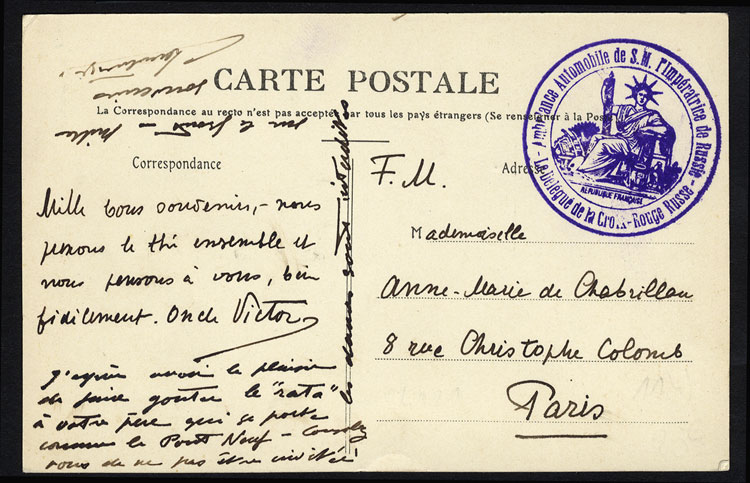 CARTE POSTALE
La Correspondance au recto n'est pas acceptée par tous les pays étrangers (Se renseigner à la Poste)
Correspondance
Adresse
Ambulance Automobile de S.M. l'Impératrice de Russie -
Le Délégué de la Croix-Rouge Russe -
REPUBLIQUE FRANÇAISE
F. M.
Mille bons souvenirs, - nous
prenons le thé ensemble et
nous pensons à vous, bien
fidèlement. Oncle Victor
J'espère avoir le plaisir
de faire gouter le "rata"
à votre père qui se porte
comme le Pont Neuf - Consolez
vous de ne pas être invitée!
les dames sont interdites
sur le front -
souvenirs
Mademoiselle
Anne-Marie de Chabrillan
8 rue Christophe Colomb
Paris